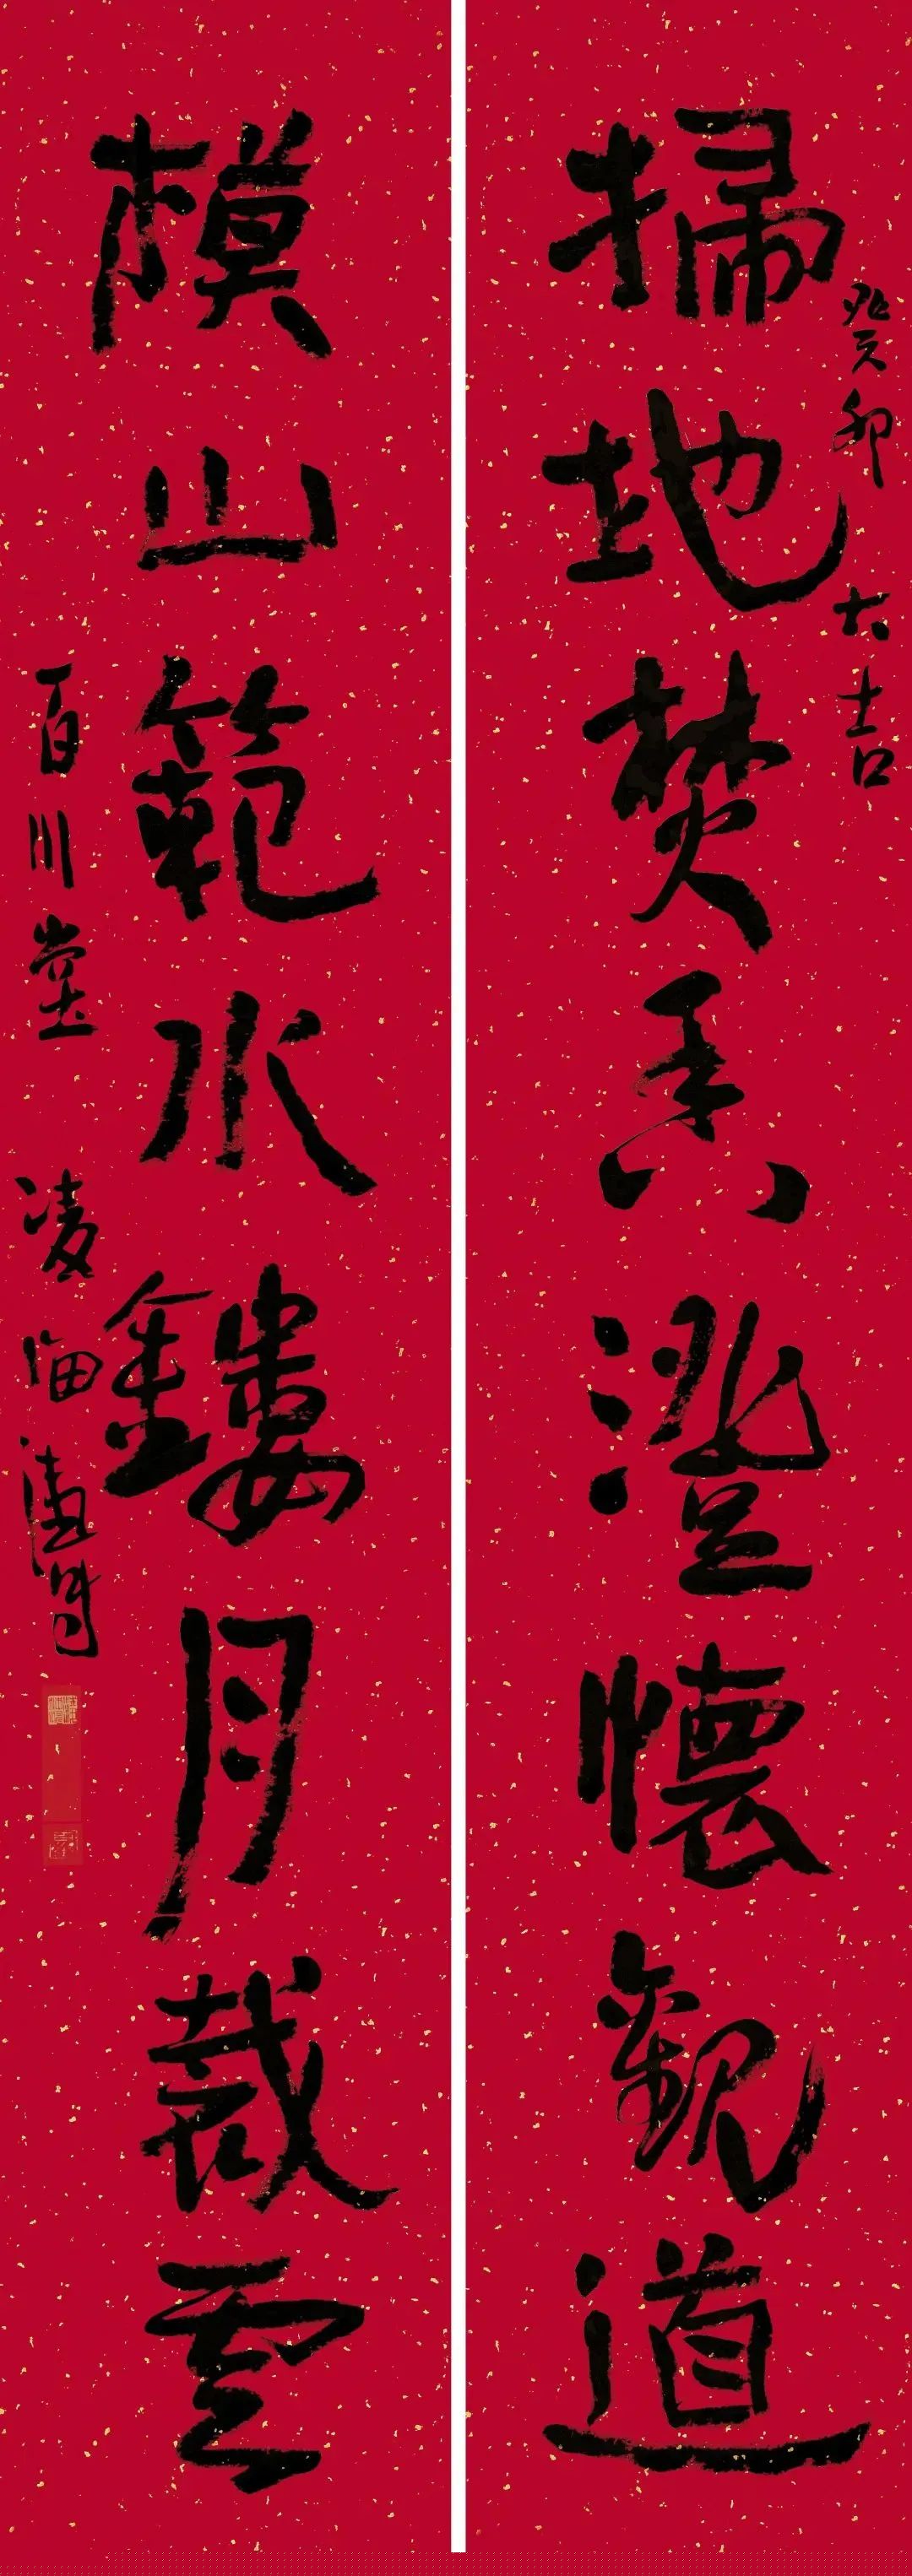 癸卯大吉
掃地焚香澄懷觀道
模山範水鏤月裁雲
百川堂 凌海濤